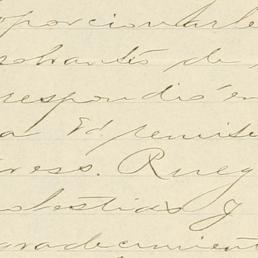 oporcionarle
sobrantes de
respondió en
a Ud. remite
ress. Rueg
olestias y
gradecimient